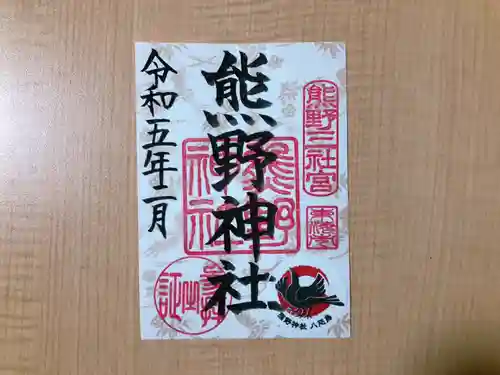 熊野三社宮
熊野神社
熊野神社
熊野神社 八咫烏
令和五年二月